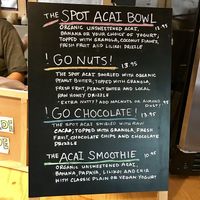 THE SPOT ACAI BOWL
13.95
ORGANIC UNSWEETENED ACAI,
BANANA OR YOUR CHOICE OF YOGURT,
TOPPED WITH GRANOLA, COCONUT FLAKES,
FRESH FRUIT AND LILIKOI DRIZZLE
! GO NUTS! 13.95
THE SPOT ACAI SWIRLED WITH ORGANIC
PEANUT BUTTER, TOPPED WITH GRANOLA,
FRESH FRUIT, PEANUT BUTTER AND LOCAL
RAW HONEY DRIZZLE
EXTRA NUTTY? ADD WALNUTS OR ALMONDS
! GO CHOCOLATE! 13.95
THE SPOT ACAI SWIRLED WITH RAW
CACAO, TOPPED WITH GRANOLA, FRESH
FRUIT, CHOCOLATE CHIPS AND CHOCOLATE
DRIZZLE
THE ACAI SMOOTHIE
ORGANIC UNSWEETENED ACAI,
BANANA, PAPAYA, LILIKOI AND CHIA
WITH CLASSIC PLAIN OR VEGAN YOGURT